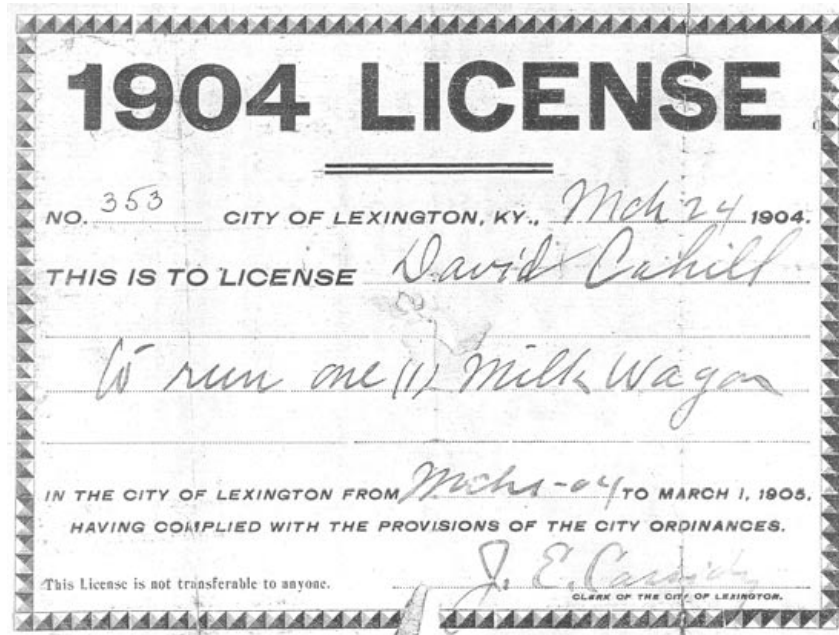 1904 LICENSE
NO. 353 CITY OF LEXINGTON, KY., Mch 24 1904.
THIS IS TO LICENSE David Cahill
to run one (1) Milk Wagon
IN THE CITY OF LEXINGTON FROM Mch 1-04 TO MARCH 1, 1905.
HAVING COMPLIED WITH THE PROVISIONS OF THE CITY ORDINANCES.
This License is not transferable to anyone. J. E. Cassidy
CLERK OF THE CITY OF LEXINGTON.